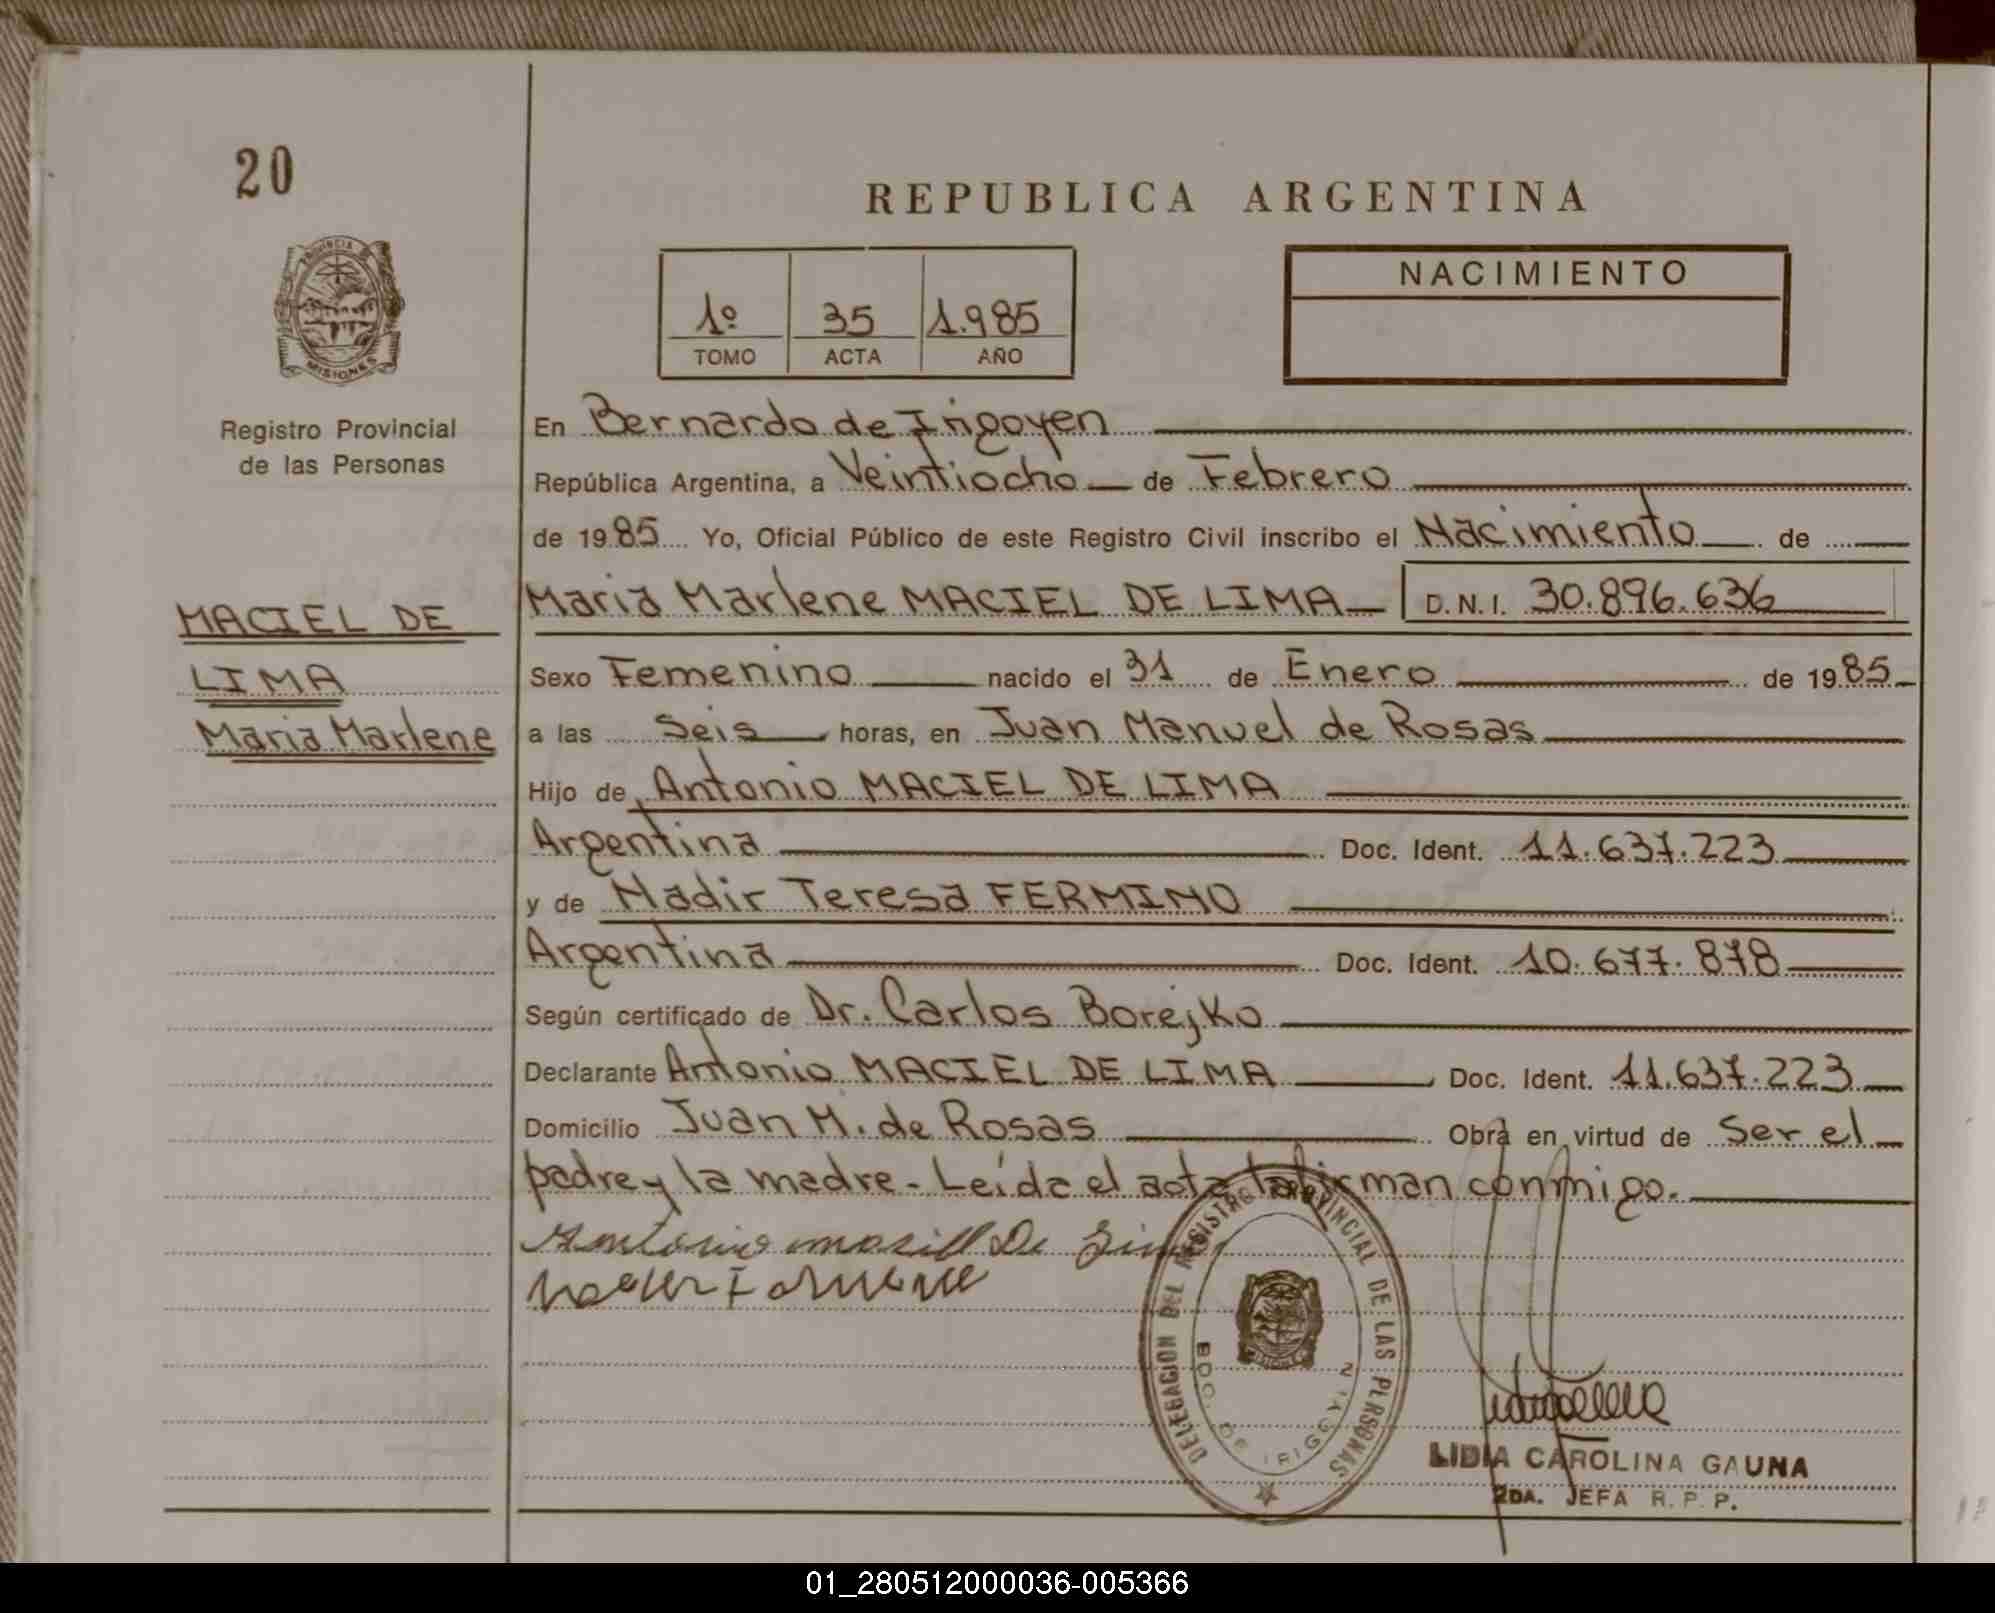 20
REPUBLICA ARGENTINA
PROVINCIA DE MISIONES
1º 35 1.985
TOMO ACTA AÑO
NACIMIENTO
Registro Provincial
de las Personas
MACIEL DE
LIMA
Maria Marlene
En Bernardo de Irigoyen
República Argentina, a Veintiocho de Febrero
de 1985 Yo, Oficial Público de este Registro Civil inscribo el Nacimiento de
Maria Marlene MACIEL DE LIMA D.N.I. 30.896.636
Sexo Femenino nacido el 31 de Enero de 1985
a las Seis horas, en Juan Manuel de Rosas
Hijo de Antonio MACIEL DE LIMA
Argentina Doc. Ident. 11.637.223
y de Nadir Teresa FERMINO
Argentina Doc. Ident. 10.677.878
Según certificado de Dr. Carlos Borejko
Declarante Antonio MACIEL DE LIMA Doc. Ident. 11.637.223
Domicilio Juan M. de Rosas Obra en virtud de Ser el
padre y la madre. Leída el acta la firman conmigo.
DELEGACION DEL REGISTRO PROVINCIAL DE LAS PERSONAS
BDO. DE IRIGOYEN
LIDIA CAROLINA GAUNA
2DA. JEFA R.P.P.
01_280512000036-005366